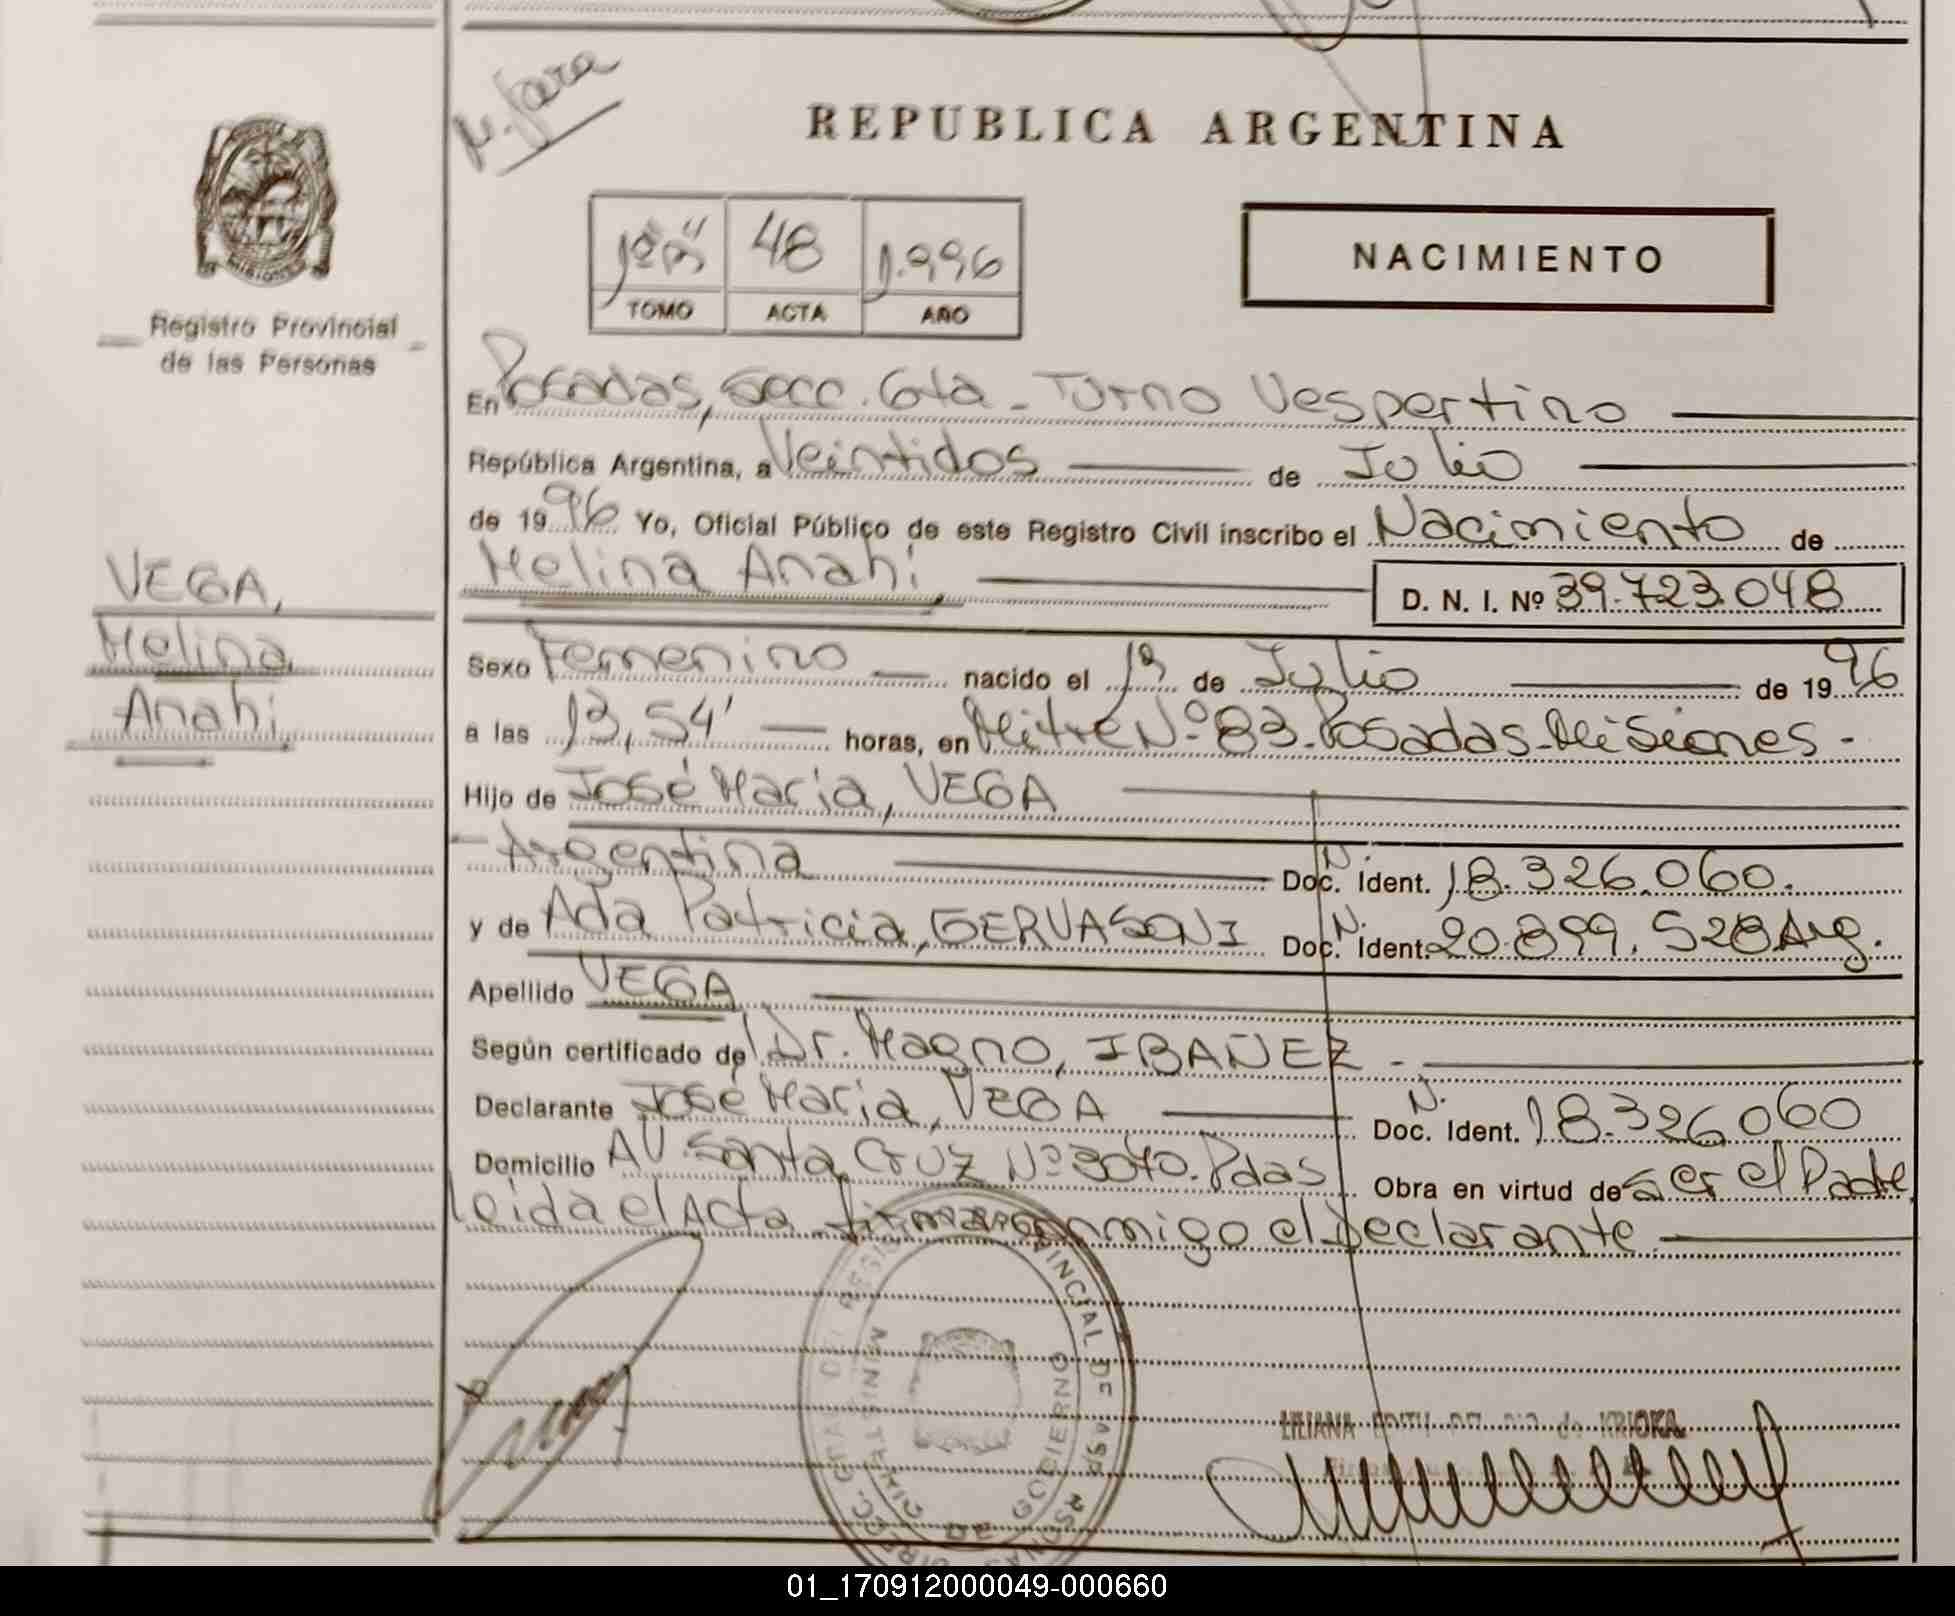 M. Jara
REPUBLICA ARGENTINA
48 1.996
TOMO ACTA AÑO
NACIMIENTO
MISIONES
Registro Provincial
de las Personas
En Posadas, Secc. 6ta - Turno Vespertino
República Argentina, a Veintidos de Julio
de 1996 Yo, Oficial Público de este Registro Civil inscribo el Nacimiento de
VEGA,
Melina
Anahi
Melina Anahi
D. N. I. Nº 39.723.048
Sexo Femenino nacido el 1º de Julio de 1996
a las 13,54' horas, en Mitre Nº 83-Posadas-Misiones-
Hijo de José Maria, VEGA
- Argentina Doc. N. Ident. 18.326.060.
y de Ada Patricia, GERVASONI Doc. N. Ident. 20.899.528 Arg.
Apellido VEGA
Según certificado de l Dr. Magno, IBAÑEZ -
Declarante José Maria, VEGA Doc. N. Ident. 18.326.060
Domicilio AV. Santa Cruz Nº 3040. Pdas Obra en virtud de ser el Padre,
leida el Acta firma conmigo el Declarante
DIREC. GRAL DEL REGISTRO PROVINCIAL DE LAS PERSONAS
MINISTERIO DE GOBIERNO
LILIANA EDITH de KRIOKA
01_170912000049-000660